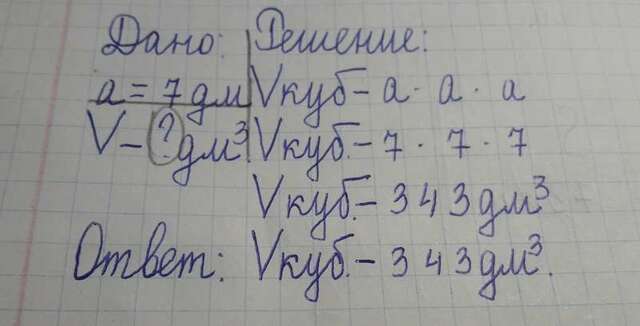 Дано: Решение:
a = 7 дм Vкуб - a · a · a
V - ? дм³ Vкуб. - 7 · 7 · 7
Vкуб. - 343 дм³
Ответ: Vкуб. - 343 дм³.